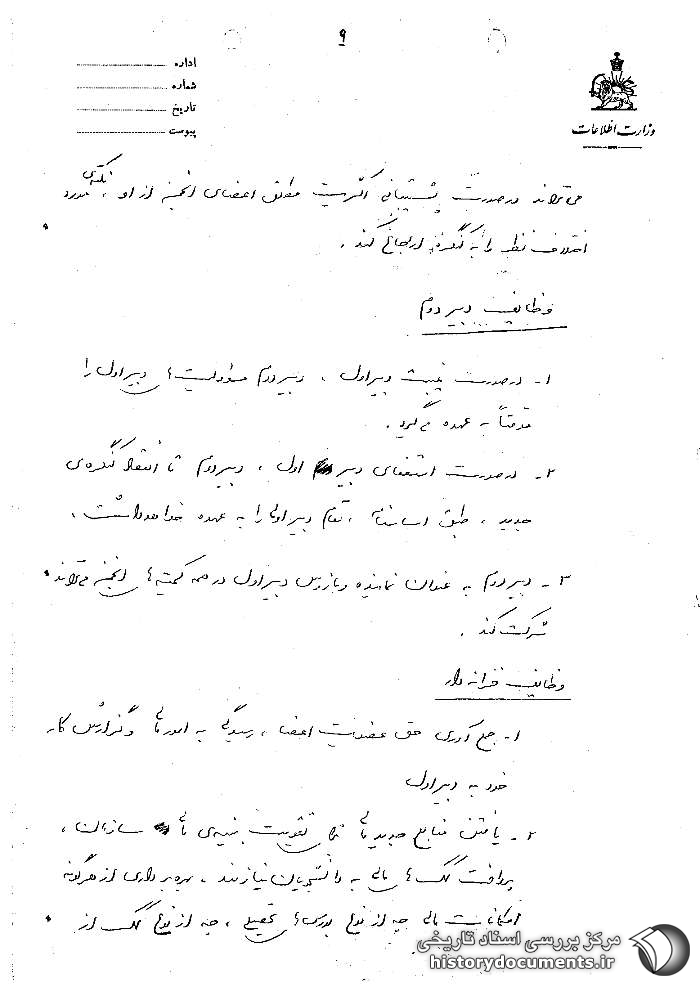 ۹
اداره
شماره
تاریخ
پیوست
وزارت اطلاعات
می‌تواند در صورت پشتیبانی اکثریت مطلق اعضای انجمن از او، نکته‌ی مورد
اختلاف نظر را به کنگره ارجاع کند.
وظایف دبیر دوم
۱- در صورت غیبت دبیر اول، دبیر دوم مسؤولیت‌های دبیر اول را
موقتاً به عهده می‌گیرد.
۲- در صورت استعفای دبیر اول، دبیر دوم تا انعقاد کنگره‌ی
جدید، طبق اساسنامه، مقام دبیر اول را به عهده خواهد داشت.
۳- دبیر دوم به عنوان نماینده و بازرس دبیر اول در همه کمیته‌های انجمن می‌تواند
شرکت کند.
وظایف خزانه‌دار
۱- جمع‌آوری حق عضویت اعضا، رسیدگی به امور مالی و گزارش کار
خود به دبیر اول
۲- یافتن منابع جدید مالی برای تقویت بنیه‌ی مالی سازمان،
پرداخت کمک‌های مالی به دانشجویان نیازمند، بهره‌برداری از هرگونه
امکانات مالی چه از نوع بورس‌های تحصیلی، چه از نوع کمک از
مرکز بررسی اسناد تاریخی
historydocuments.ir